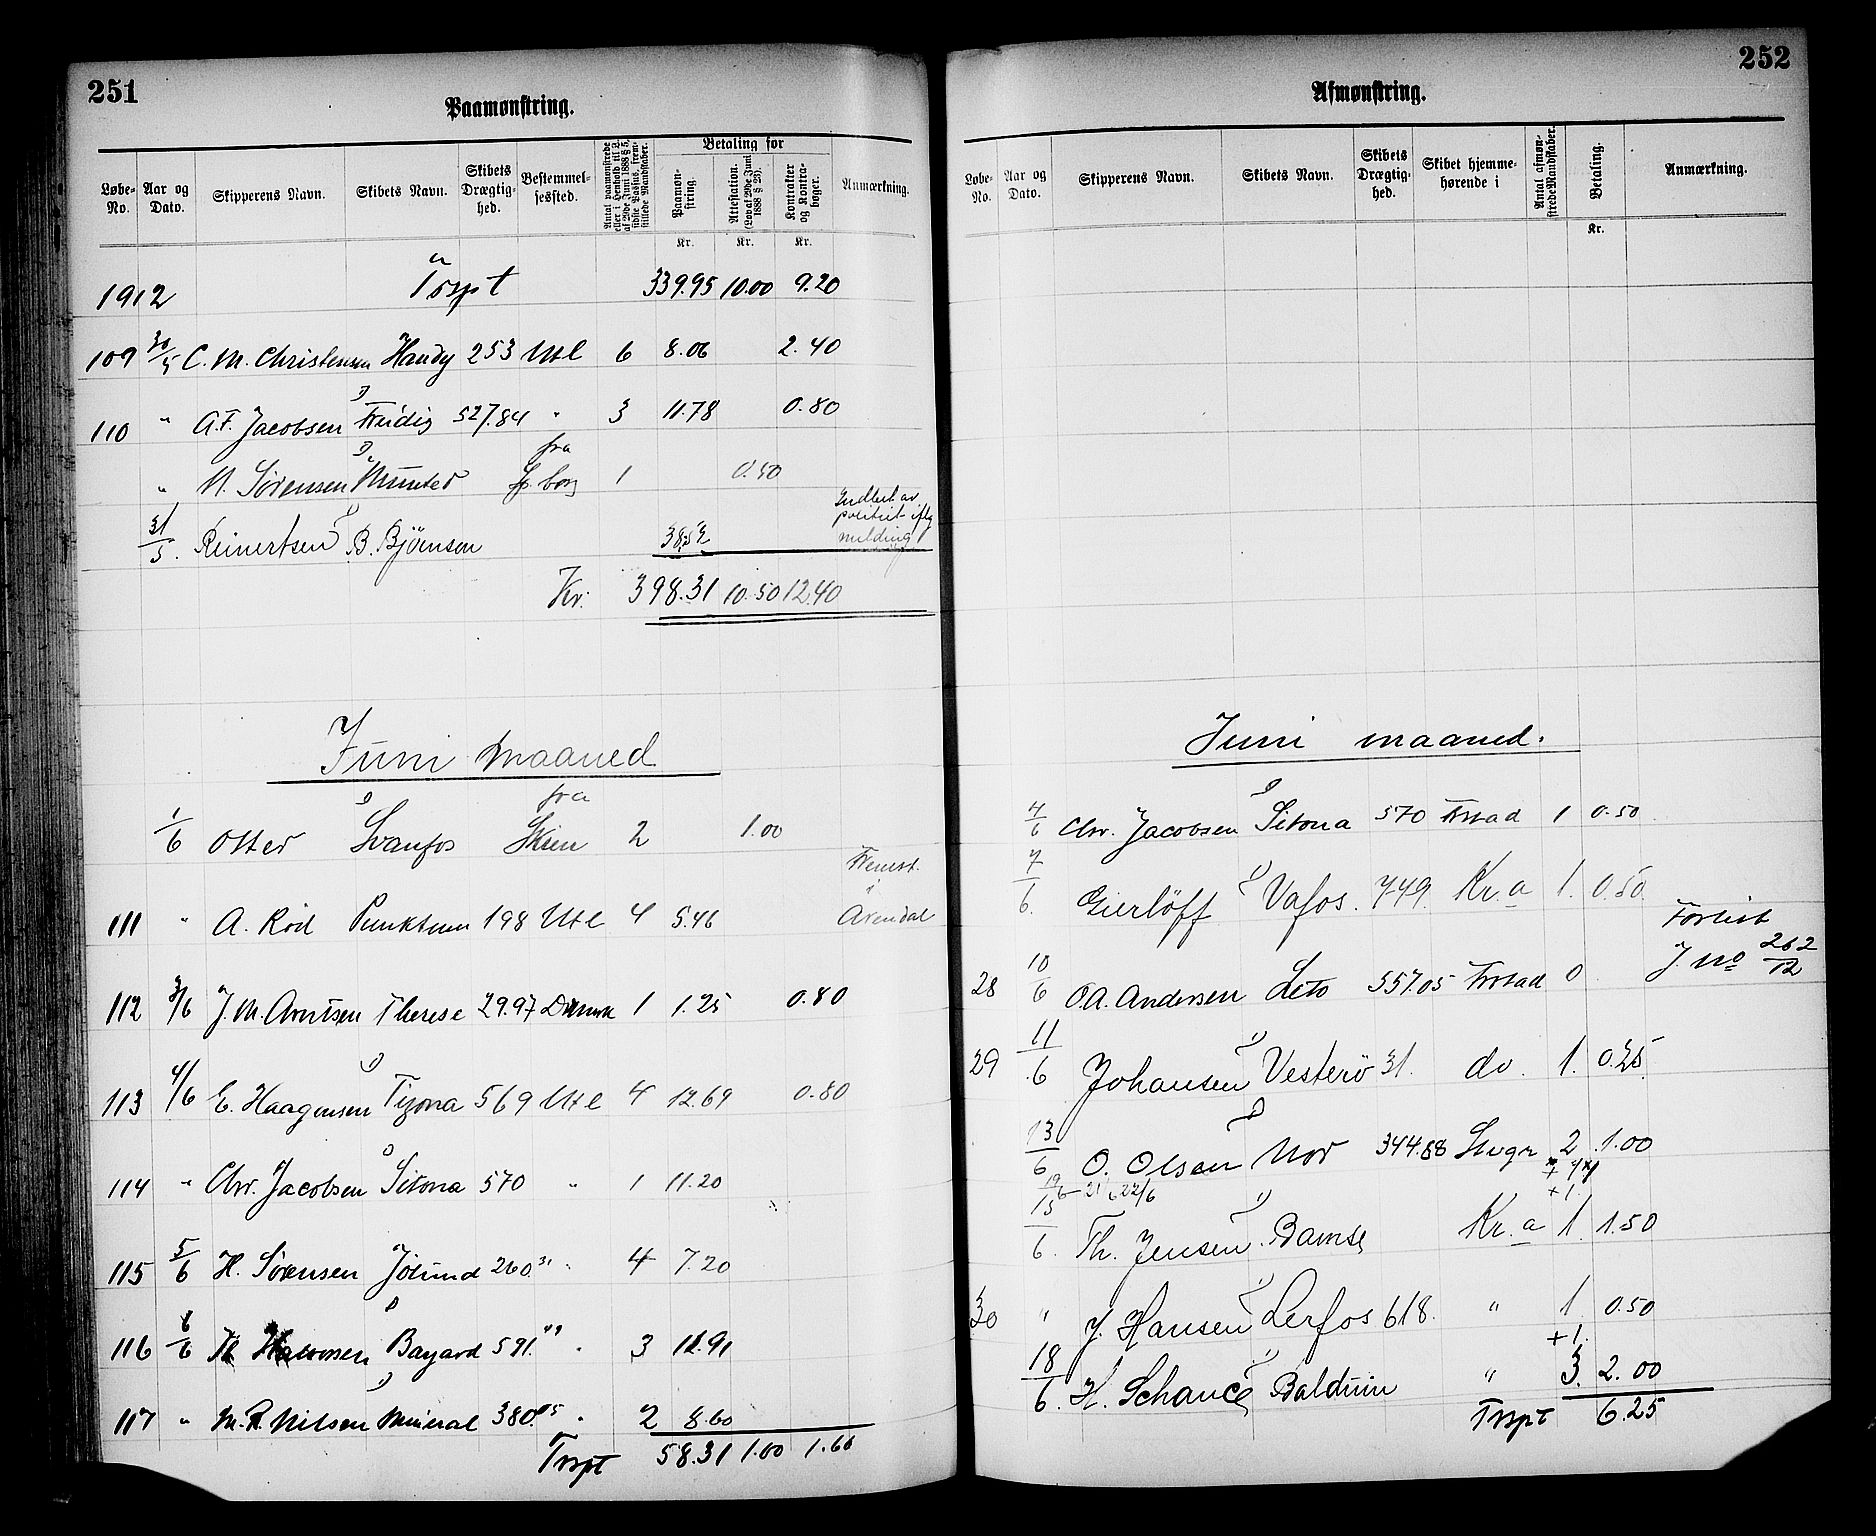 251
Paamønstring.
Løbe-No. Aar og Dato. Skipperens Navn. Skibets Navn. Skibets Drægtighed. Bestemmelsessted. Antal paamønstrede eller i Henhold til L. af 29de Juni 1888 § 5, sidste Passus, fremstillede Mandskaber. Betaling for Paamønstring. Attestation. (Lov af 29de Juni 1888 § 52). Kontrakter og Kontrabøger. Anmærkning.
Kr. Kr. Kr.
1912 Trspt 339.95 10.00 9.20
109 30/5 C. M. Christensen Handy 253 Utl 6 8.06 2.40
110 " A.F. Jacobsen Freidig 527.84 " 3 11.78 0.80
fra
" N. Sørensen Munter borg 1 0.50
31/5. Reinertsen B. Bjørnson 38.52 Indbet. av politiet iflg melding
Kr. 398.31 10.50 12.40
Juni maaned
fra
1/6 Otter Svanfos Skien 2 1.00
111 " A. Rød Punktum 198 Utl 4 5.46 Fremst. i Arendal
112 3/6 J. M. Arntsen Therese 29.97 Danmk 1 1.25 0.80
113 4/6 E. Haagensen Tizona 569 Utl 4 12.69 0.80
114 " Chr. Jacobsen Sitona 570 " 1 11.20
115 5/6 H. Sørensen Jötund 260.31 " 4 7.20
116 6/6 Bayard 591. " 3 11.91
117 " M. R. Nilsen Mineral 380.05 " 2 8.60
Trspt 58.31 1.00 1.60
252
Afmønstring.
Løbe-No. Aar og Dato. Skipperens Navn. Skibets Navn. Skibets Drægtighed. Skibet hjemmehørende i Antal afmønstrede Mandskaber. Betaling. Anmærkning.
Kr.
Juni maaned.
4/6 Chr. Jacobsen Sitona 570 Frstad 1 0.50
7/6. Gierløff Vafos. 749. Kr.a 1. 0.50
28 10/6 O.A. Andersen Leto 557.05 Frstad 0 Forlist J. No 262/12
29 11/6 Johansen Vesterø 31. do. 1. 0.25
13/6 O. Olsen Nor 344.88 Stvgr 2 1.00
19/6 21/6 22/6 +1.
15/6. Th. Jensen Bamse Kr.a 1. 1.50
30 " J. Hansen Lerfos 618. " 1. 0.50
+1.
18/6. H. Schance Balduin " 3. 2.00
Trspt 6.25